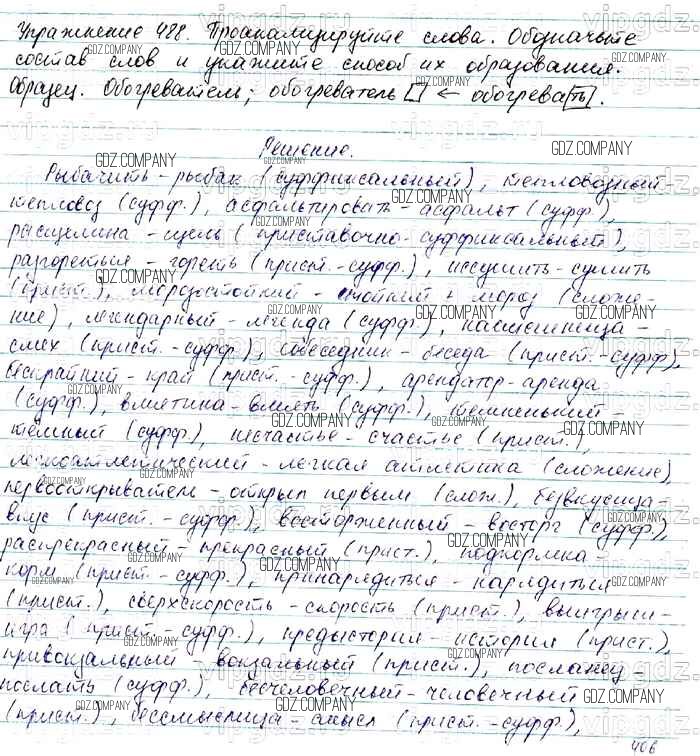 Упражнение 488. Проанализируйте слова. Обозначьте
состав слов и укажите способ их образования.
Образец. Обогреватель; обогреватель ← обогревать.
Решение.
Рыбачить - рыбак (суффиксальный), тепловозный -
тепловоз (суфф.), асфальтировать - асфальт (суфф.),
расщелина - щель (приставочно-суффиксальный),
разгореться - гореть (прист.-суфф.), иссушить - сушить
(прист.), морозостойкий - стойкий + мороз (сложе-
ние), легендарный - легенда (суфф.), насмешница -
смех (прист.-суфф.), собеседник - беседа (прист.-суфф),
бескрайний - край (прист.-суфф.), арендатор - аренда
(суфф.), вмятина - вмять (суфф.), темненький -
тёмный (суфф.), несчастье - счастье (прист.),
легкоатлетический - легкая атлетика (сложение)
первооткрыватель - открыл первым (слож.), безвкусица -
вкус (прист.-суфф.), восторженный - восторг (суфф.),
распрекрасный - прекрасный (прист.), подкормка -
корм (прист.-суфф.), принарядиться - нарядиться
(прист.), сверхскорость - скорость (прист.), выигрыш -
игра (прист.-суфф.), предыстория - история (прист.),
привокзальный - вокзальный (прист.), посланец -
послать (суфф.), бесчеловечный - человечный
(прист.), бессмыслица - смысл (прист.-суфф.),
406